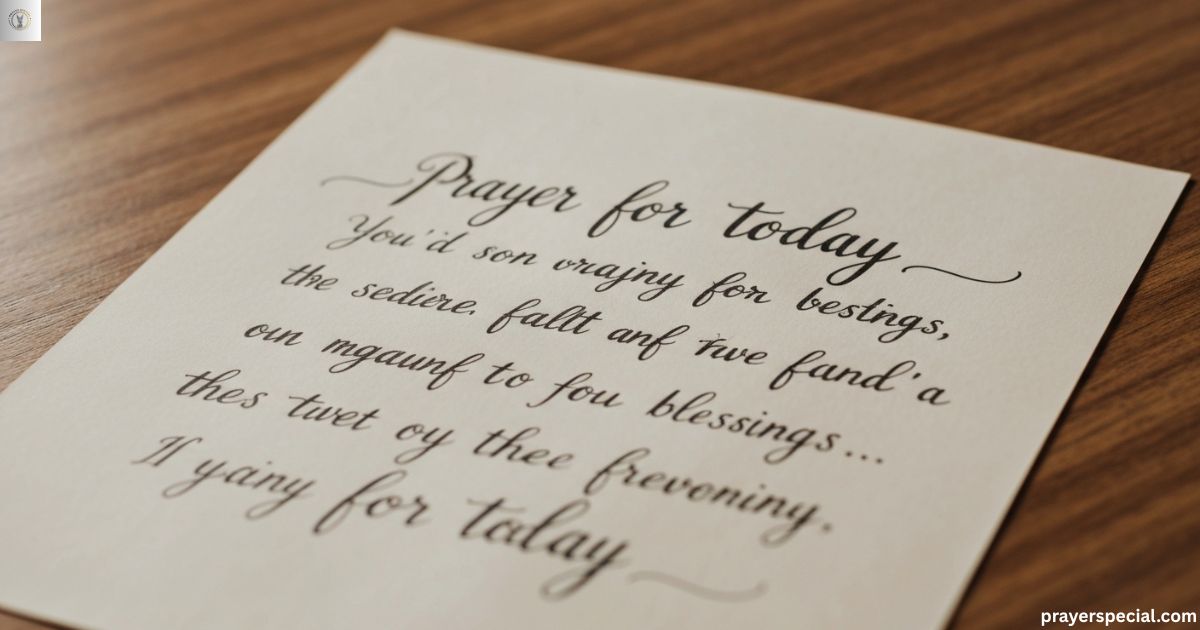 Prayer for today
You'd son vrajny for bestings,
the sediure. fallt anf rwe fand'a
oın mgaunf to fou blessings...
thes twet oy thee frevoning.
If yainy for talay
prayerspecial.com